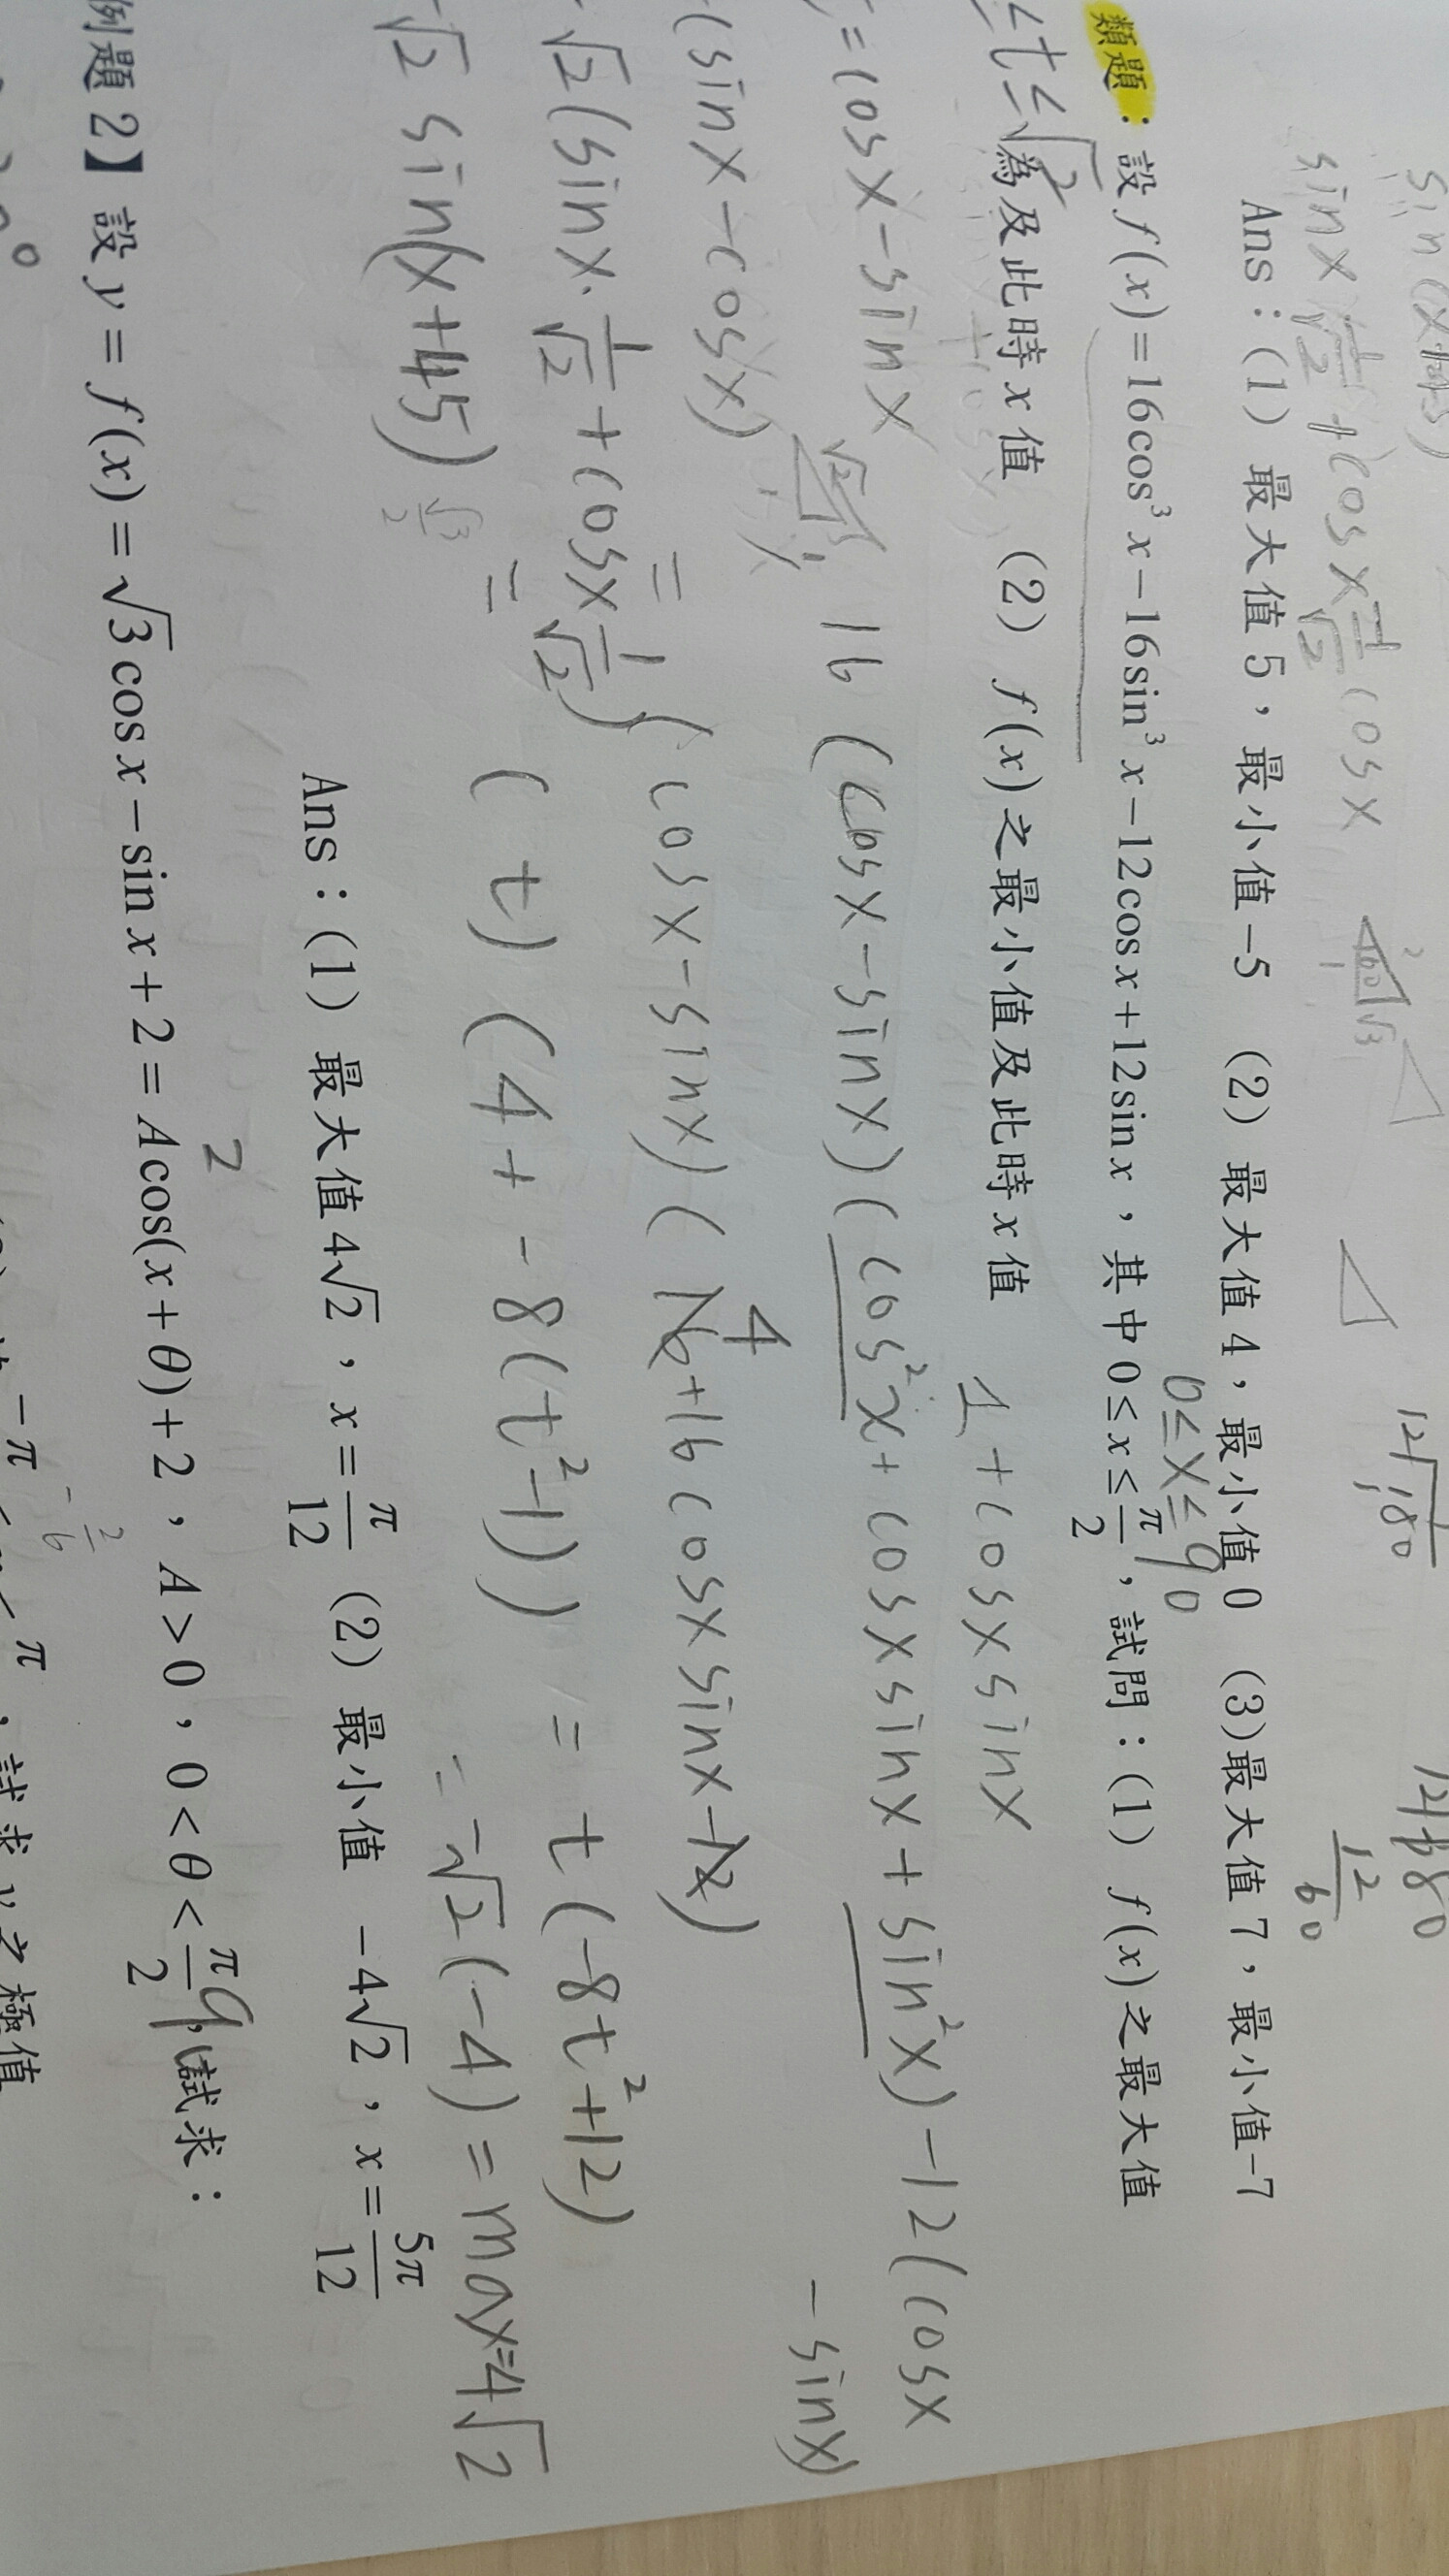 sin(x+45)
12√180
sinx 1/√2 + cosx 1/√2 cosx
2 60 √3 1
12/60
Ans：(1) 最大值 5，最小值 −5 (2) 最大值 4，最小值 0 (3)最大值 7，最小值−7
0≤x≤90
類題：設 f(x)=16cos³x−16sin³x−12cosx+12sinx，其中 0≤x≤π/2，試問：(1) f(x)之最大值
≤t≤√2
為及此時 x 值 (2) f(x)之最小值及此時 x 值
1+cosxsinx
=cosx−sinx
16(cosx−sinx)(cos²x+cosxsinx+sin²x)−12(cosx
−sinx)
−(sinx−cosx)
4
=(cosx−sinx)(16+16cosxsinx−12)
−√2(sinx·1/√2+cosx 1/√2)
=(t)(4+−8(t²−1)) = t(−8t²+12)
−√2sin(x+45)
√3/2
=−√2(−4)=max=4√2
Ans：(1) 最大值 4√2，x=π/12 (2) 最小值 −4√2，x=5π/12
2
例題 2】設 y=f(x)=√3cosx−sinx+2=Acos(x+θ)+2，A>0，0<θ<π/2，試求：